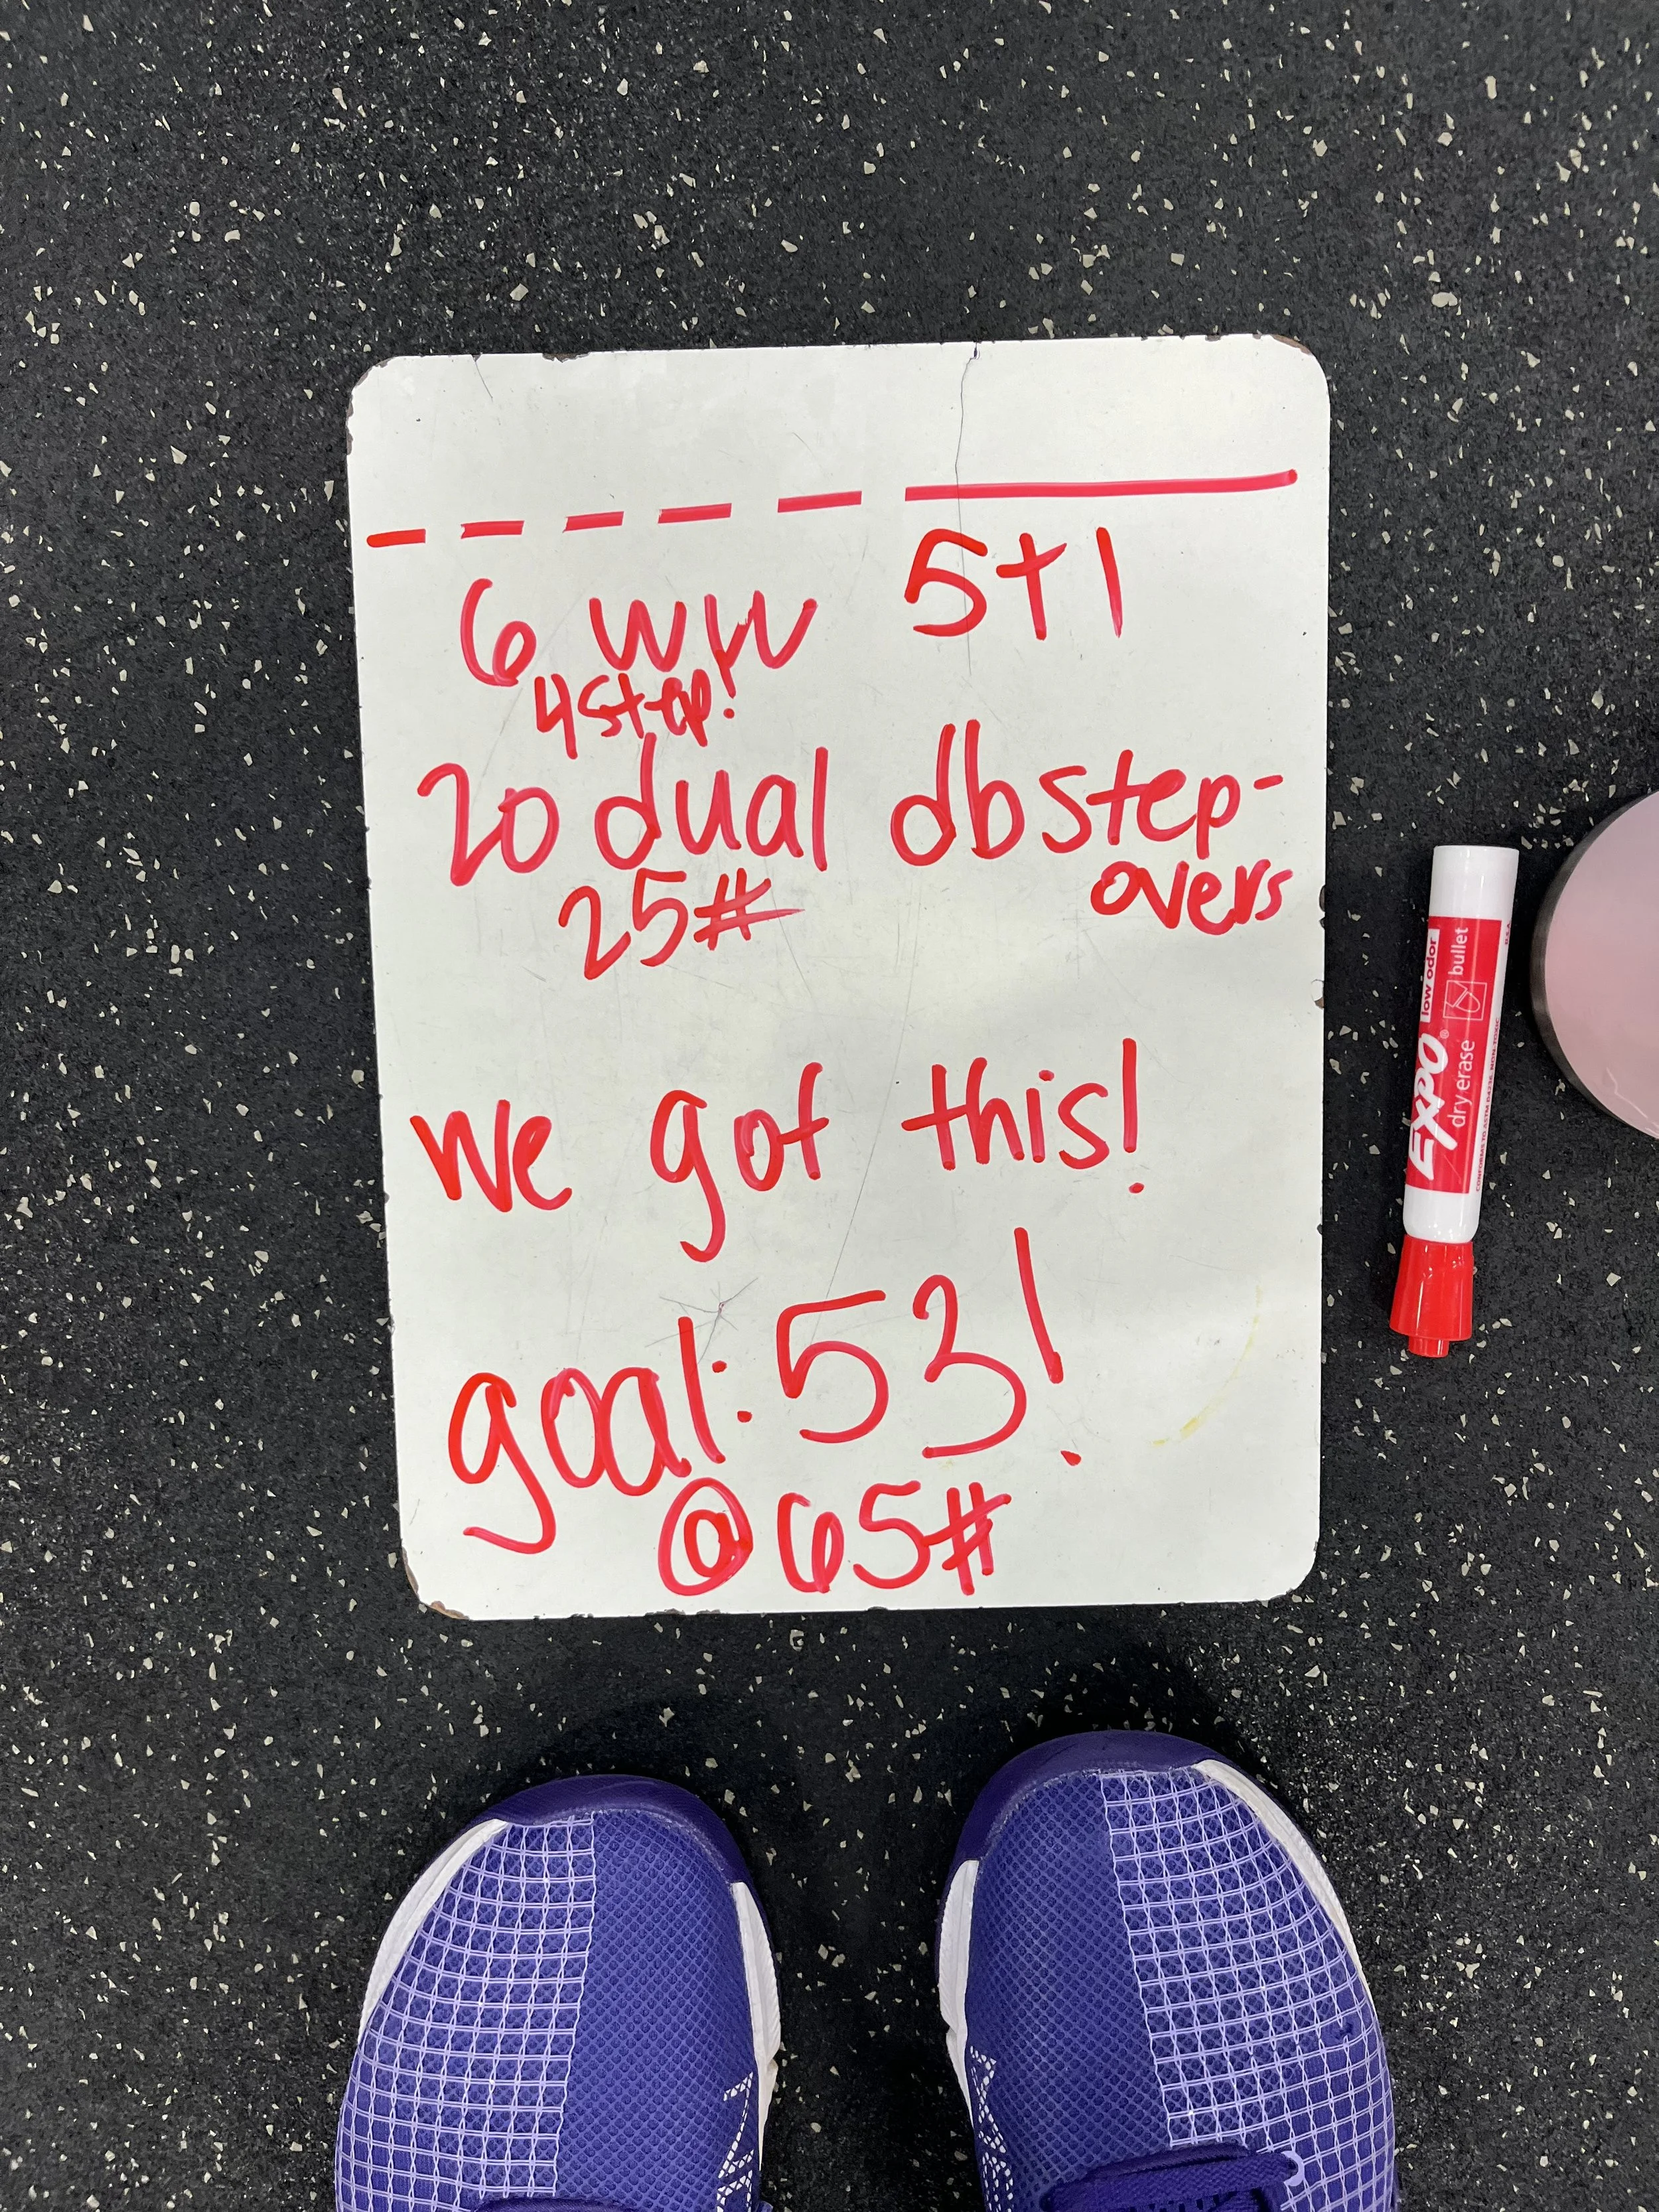 6 WW 5+1
4 step!
20 dual db step-
overs
25#
we got this!
goal: 53!
@ 65#
EXPO®
low odor
dry erase
bullet